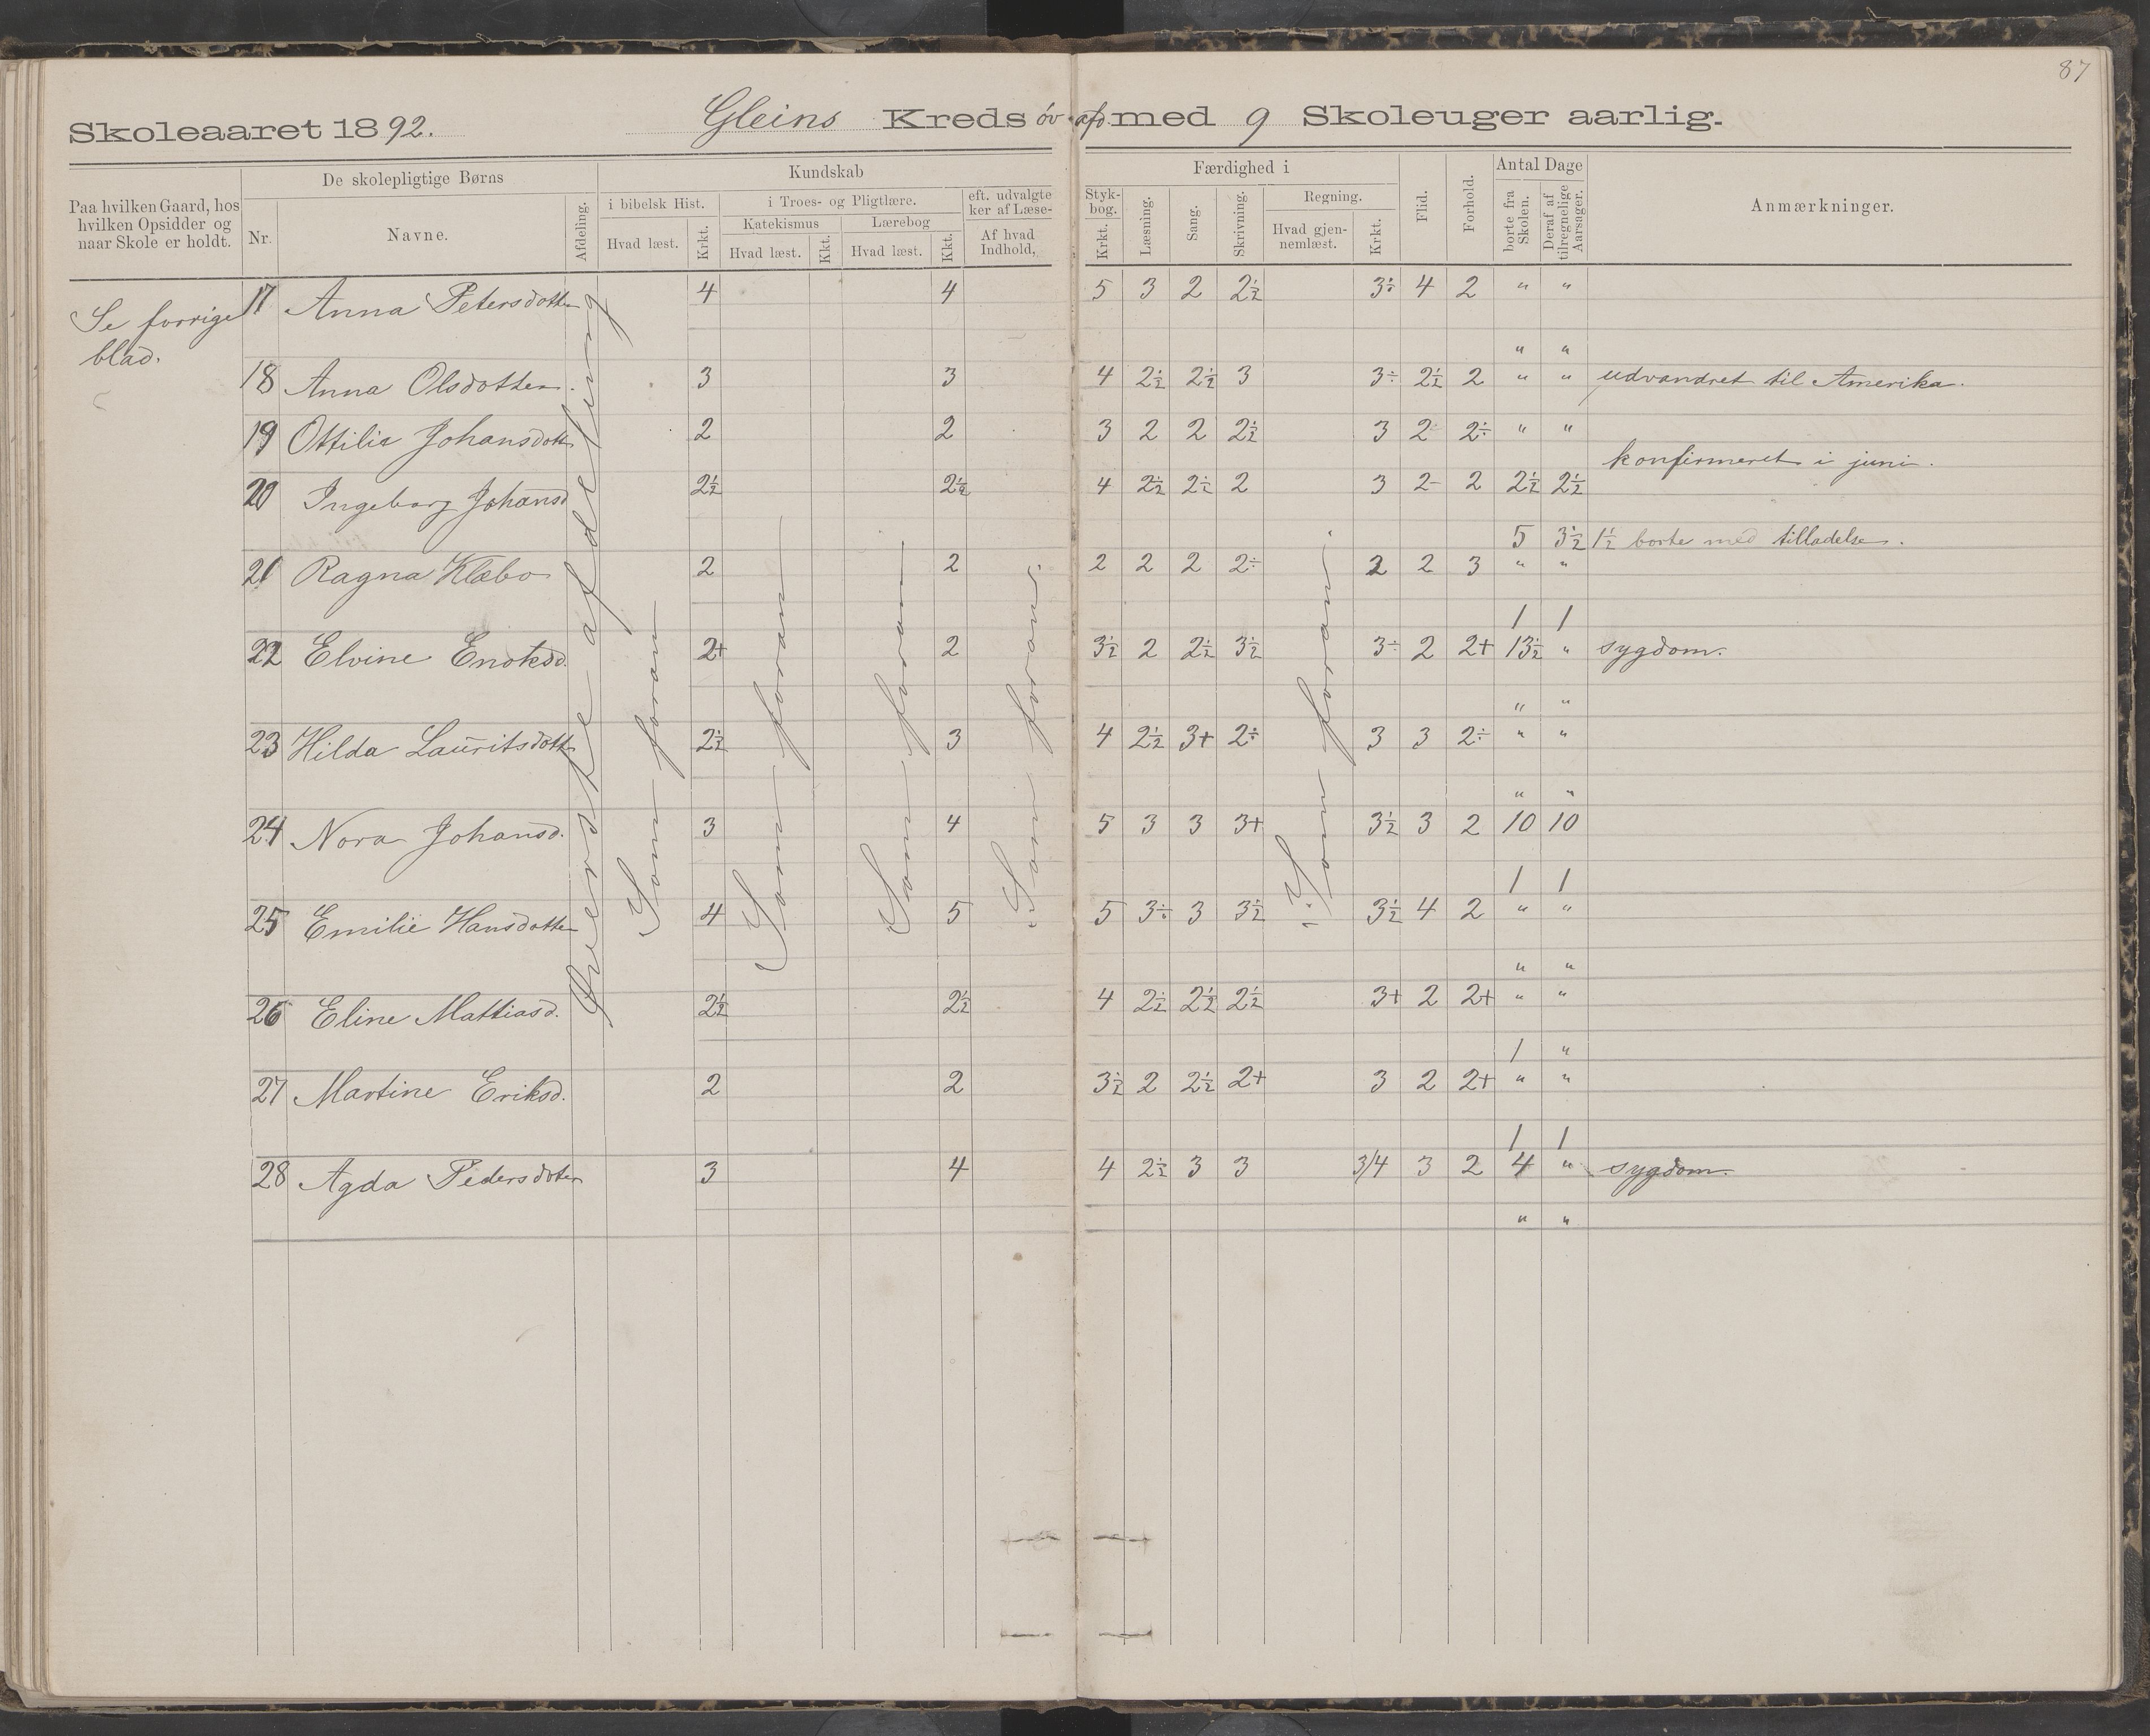 87
Skoleaaret 1892. Gleins Kreds öv. afd. med 9 Skoleuger aarlig.
Paa hvilken Gaard, hos hvilken Opsidder og naar Skole er holdt.
De skolepligtige Børns
Nr. Navne. Afdeling.
Kundskab
i bibelsk Hist. Hvad læst. Krkt.
i Troes- og Pligtlære.
Katekismus Hvad læst. Kkt.
Lærebog Hvad læst. Kkt.
eft. udvalgte ker af Læse- Af hvad Indhold,
Styk- bog. Krkt.
Færdighed i
Læsning. Sang. Skrivning.
Regning. Hvad gjen- nemlæst. Krkt.
Flid. Forhold.
Antal Dage
borte fra Skolen. Deraf af tilregnelige Aarsager.
Anmærkninger.
Se forrige
blad.
Øverste afdeling
Som foran
Som foran
Som foran
Som foran
Som foran
17 Anna Petersdotter 4 4 5 3 2 2½ 3÷ 4 2 " "
" "
18 Anna Olsdotter. 3 3 4 2½ 2½ 3 3÷ 2½ 2 " " udvandret til Amerika.
19 Ottilie Johansdott 2 2 3 2 2 2½ 3 2 2÷ " "
konfirmeret i juni.
20 Ingeborg Johansd 2½ 2½ 4 2½ 2½ 2 3 2- 2 2½ 2½
5 3½ 1½ borte med tilladelse.
21 Ragna Klæbo 2 2 2 2 2 2÷ 2 2 3 " "
1 1
22 Elvine Enoksd. 2+ 2 3½ 2 2½ 3½ 3÷ 2 2+ 13½ " sygdom.
" "
23 Hilda Lauritsdott 2½ 3 4 2½ 3+ 2÷ 3 3 2÷ " "
" "
24 Nora Johansd. 3 4 5 3 3 3+ 3½ 3 2 10 10
1 1
25 Emilie Hansdotter 4 5 5 3÷ 3 3½ 3½ 4 2 " "
" "
26 Eline Mattiasd. 2½ 2½ 4 2½ 2½ 2½ 3+ 2 2+ " "
1 "
27 Martine Eriksd. 2 2 3½ 2 2½ 2+ 3 2 2+ " "
1 1
28 Agda Pedersdoter 3 4 4 2½ 3 3 3/4 3 2 4 " sygdom.
" "